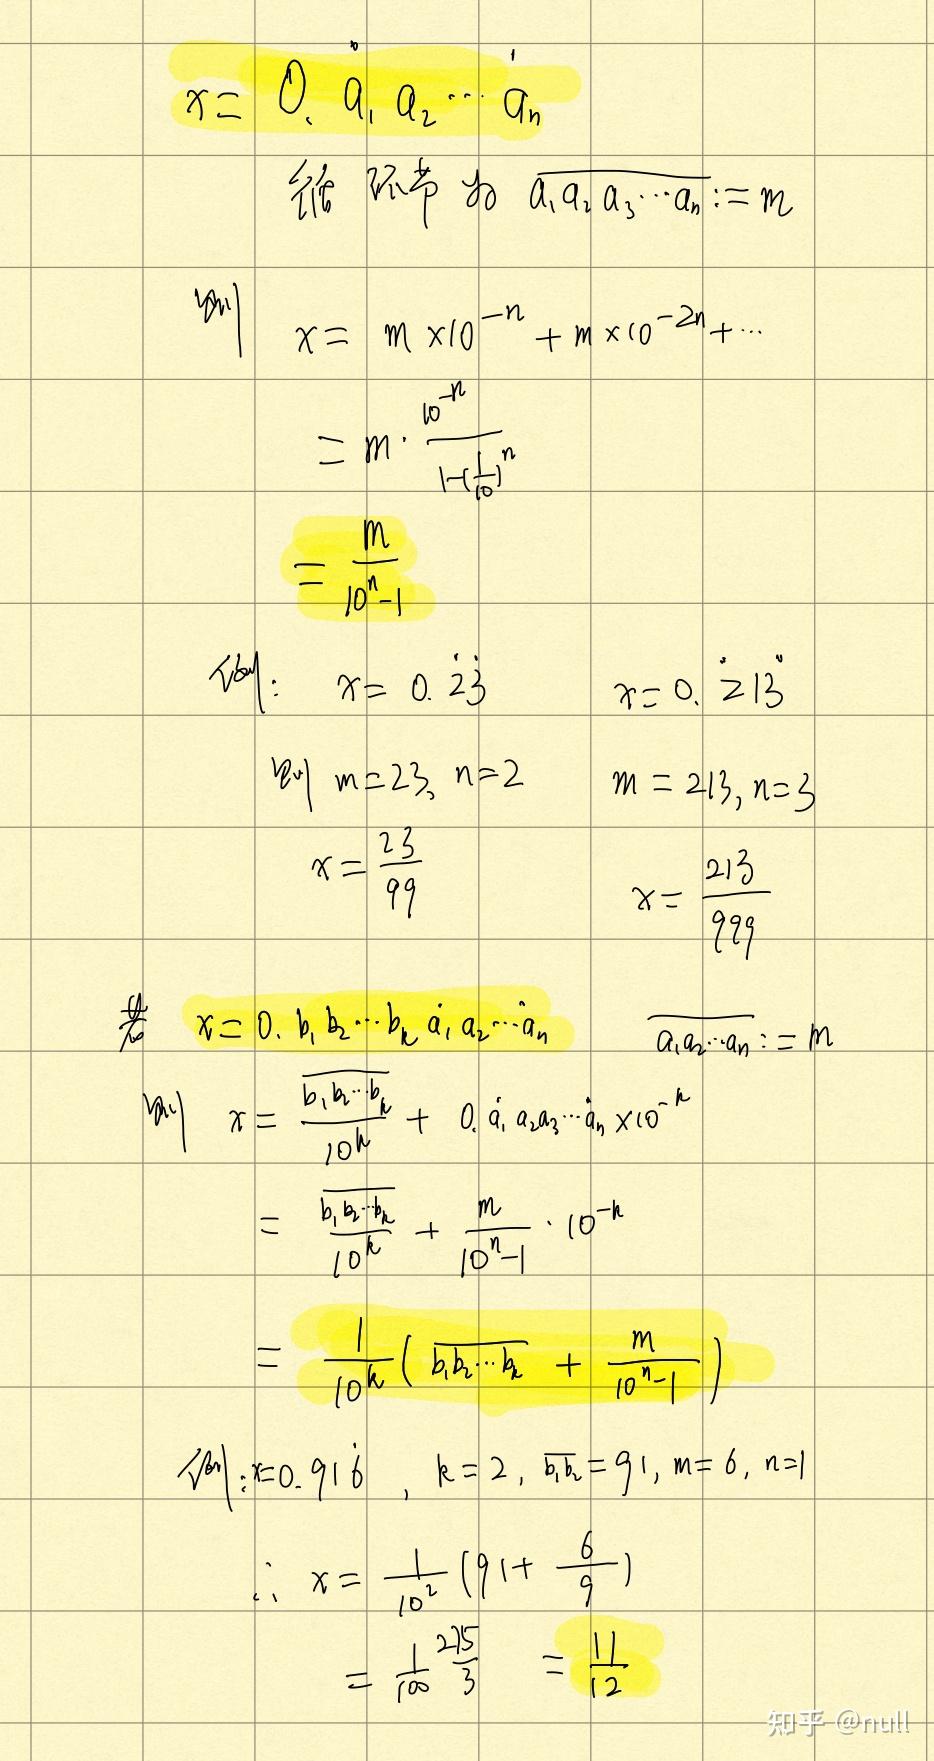 x = 0.ȧ₁a₂⋯ȧₙ
循环节为 \overline{a₁a₂a₃⋯aₙ} := m
则 x = m×10⁻ⁿ + m×10⁻²ⁿ + ⋯
= m · \frac{10⁻ⁿ}{1-(\frac{1}{10})ⁿ}
= \frac{m}{10ⁿ-1}
例: x = 0.2̇3̇ x = 0.2̇13̇
则 m=23, n=2 m = 213, n=3
x = \frac{23}{99} x = \frac{213}{999}
若 x = 0.b₁b₂⋯bₖȧ₁a₂⋯ȧₙ \overline{a₁a₂⋯aₙ} := m
则 x = \frac{\overline{b₁b₂⋯bₖ}}{10ᵏ} + 0.ȧ₁a₂a₃⋯ȧₙ×10⁻ᵏ
= \frac{\overline{b₁b₂⋯bₖ}}{10ᵏ} + \frac{m}{10ⁿ-1} · 10⁻ᵏ
= \frac{1}{10ᵏ}(\overline{b₁b₂⋯bₖ} + \frac{m}{10ⁿ-1})
例: x=0.916̇, k=2, \overline{b₁b₂}=91, m=6, n=1
∴ x = \frac{1}{10²}(91+\frac{6}{9})
= \frac{1}{100} \frac{275}{3} = \frac{11}{12}
知乎 @null